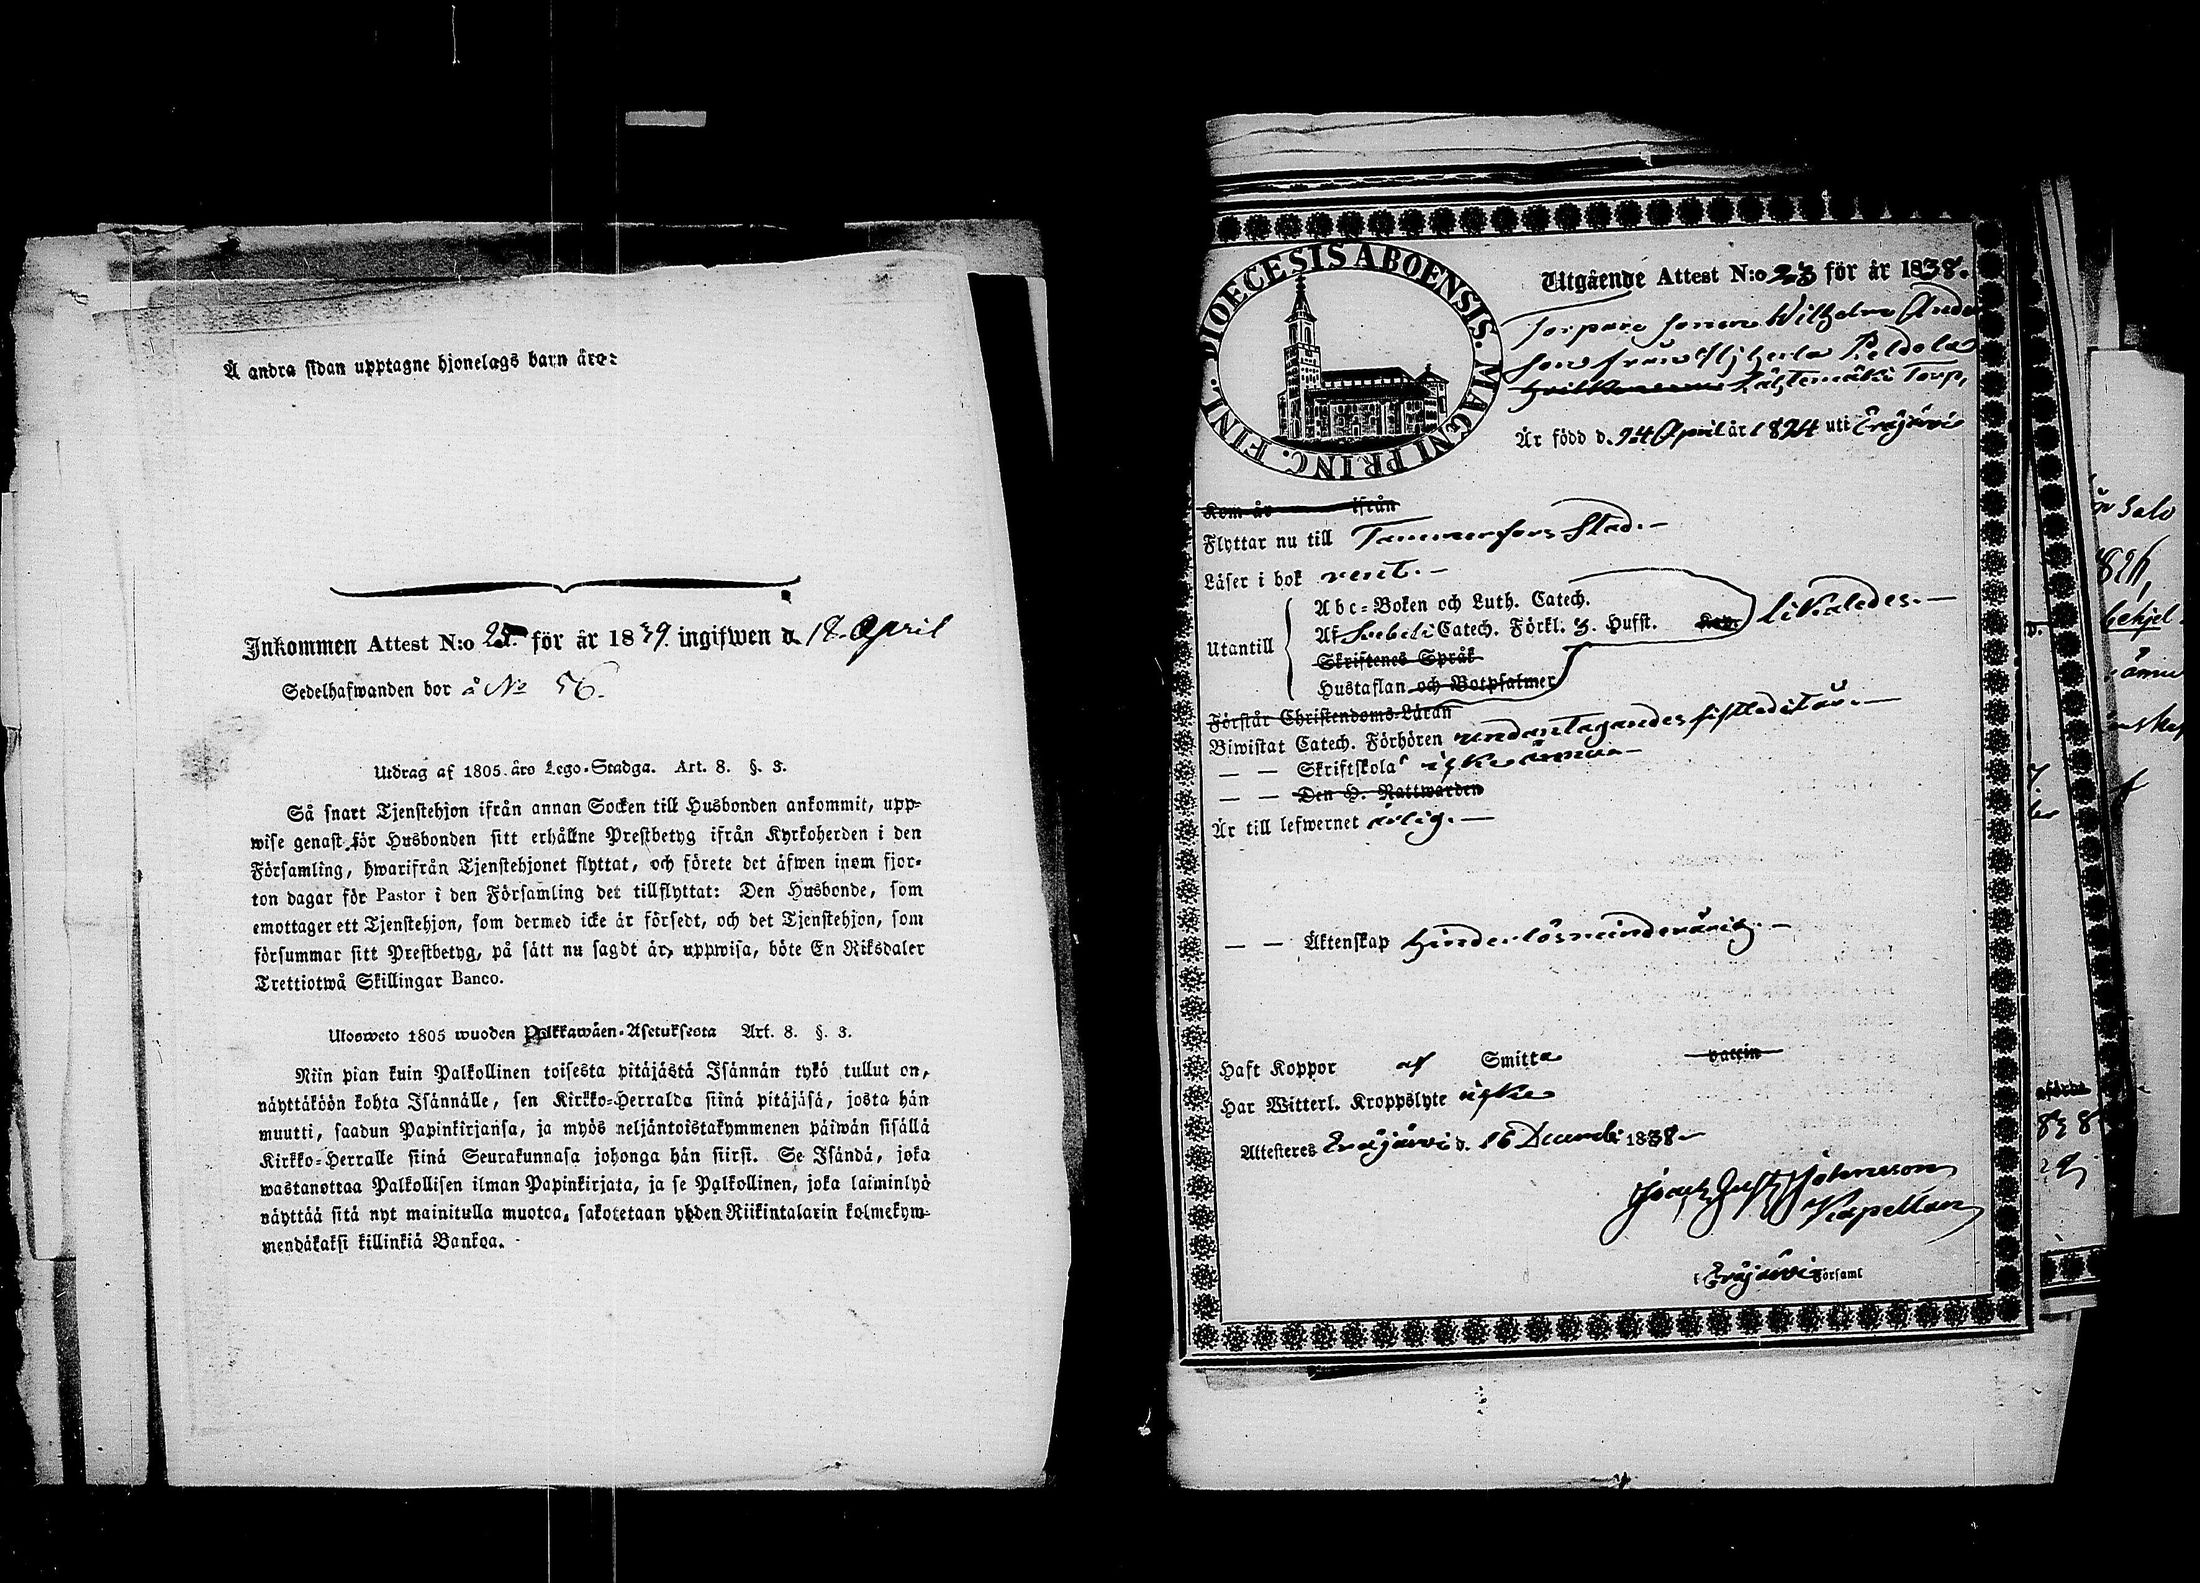 Å andra sidan upptagne hjonelags barn äro:
Inkommen Attest N:o 25. för år 1839. ingifwen d. 18. April
Sedelhafwanden bor å No 56.
Utdrag af 1805. års Lego-Stadga. Art. 8. §. 3.
Så snart Tjenstehjon ifrån annan Socken till Husbonden ankommit, upp-
wise genast för Husbonden sitt erhållne Prestbetyg ifrån Kyrkoherden i den
Församling, hwarifrån Tjenstehjonet flyttat, och förete det äfwen inom fjor-
ton dagar för Pastor i den Församling det tillflyttat: Den Husbonde, som
emottager ett Tjenstehjon, som dermed icke är försedt, och det Tjenstehjon, som
försummar sitt Prestbetyg, på sätt nu sagdt är, uppwisa, böte En Riksdaler
Trettiotwå Skillingar Banco.
Ulosweto 1805 wuoden Palkkawäen-Asetuksesta Art. 8. §. 3.
Niin pian kuin Palkollinen toisesta pitäjästä Isännän tykö tullut on,
näyttäköön kohta Isännälle, sen Kirkko-Herralda siinä pitäjäsä, josta hän
muutti, saadun Papinkirjansa, ja myös neljäntoistakymmenen päiwän sisällä
Kirkko-Herralle siinä Seurakunnasa johonga hän siirsi. Se Isändä, joka
wastanottaa Palkollisen ilman Papinkirjata, ja se Palkollinen, joka laiminlyö
näyttää sitä nyt mainitulla muotoa, sakotetaan yhden Riikintalarin kolmekym-
mendäkaksi killinkiä Bankoa.
DIOECESIS ABOENSIS. MAGNI PRINC. FINL.
Utgående Attest N:o 23 för år 1838.
Torpare sonen Wilhelm Ande
son från Hjherla Peldola
Lähtemäki Torp,
Är född d. 24 April år 1824 uti Eräjärvi
Kom år ifrån
Flyttar nu till Tammerfors Stad.-
Läser i bok rent.-
Utantill
Abc-Boken och Luth. Catech.
Af Svebeli Catech. Förkl. 3. Hufst. likaledes.-
Skriftenes Språk
Hustaflan och Botpsalmer
Förstår Christendoms-Läran
Biwistat Catech. Förhören undantagandes sistledit år.-
— — Skriftskola icke ännu-
— — Den H. Nattwarden
Är till lefwernet ärlig.-
— — Äktenskap hinderlös minderårig.-
Haft Koppor af Smitta vaccin
Har Witterl. Kroppslyte icke
Attesteres Eräjärvi d. 16 Decemb: 1838.
Gust Johnsson
Kapellan
i Eräjärvi Församl